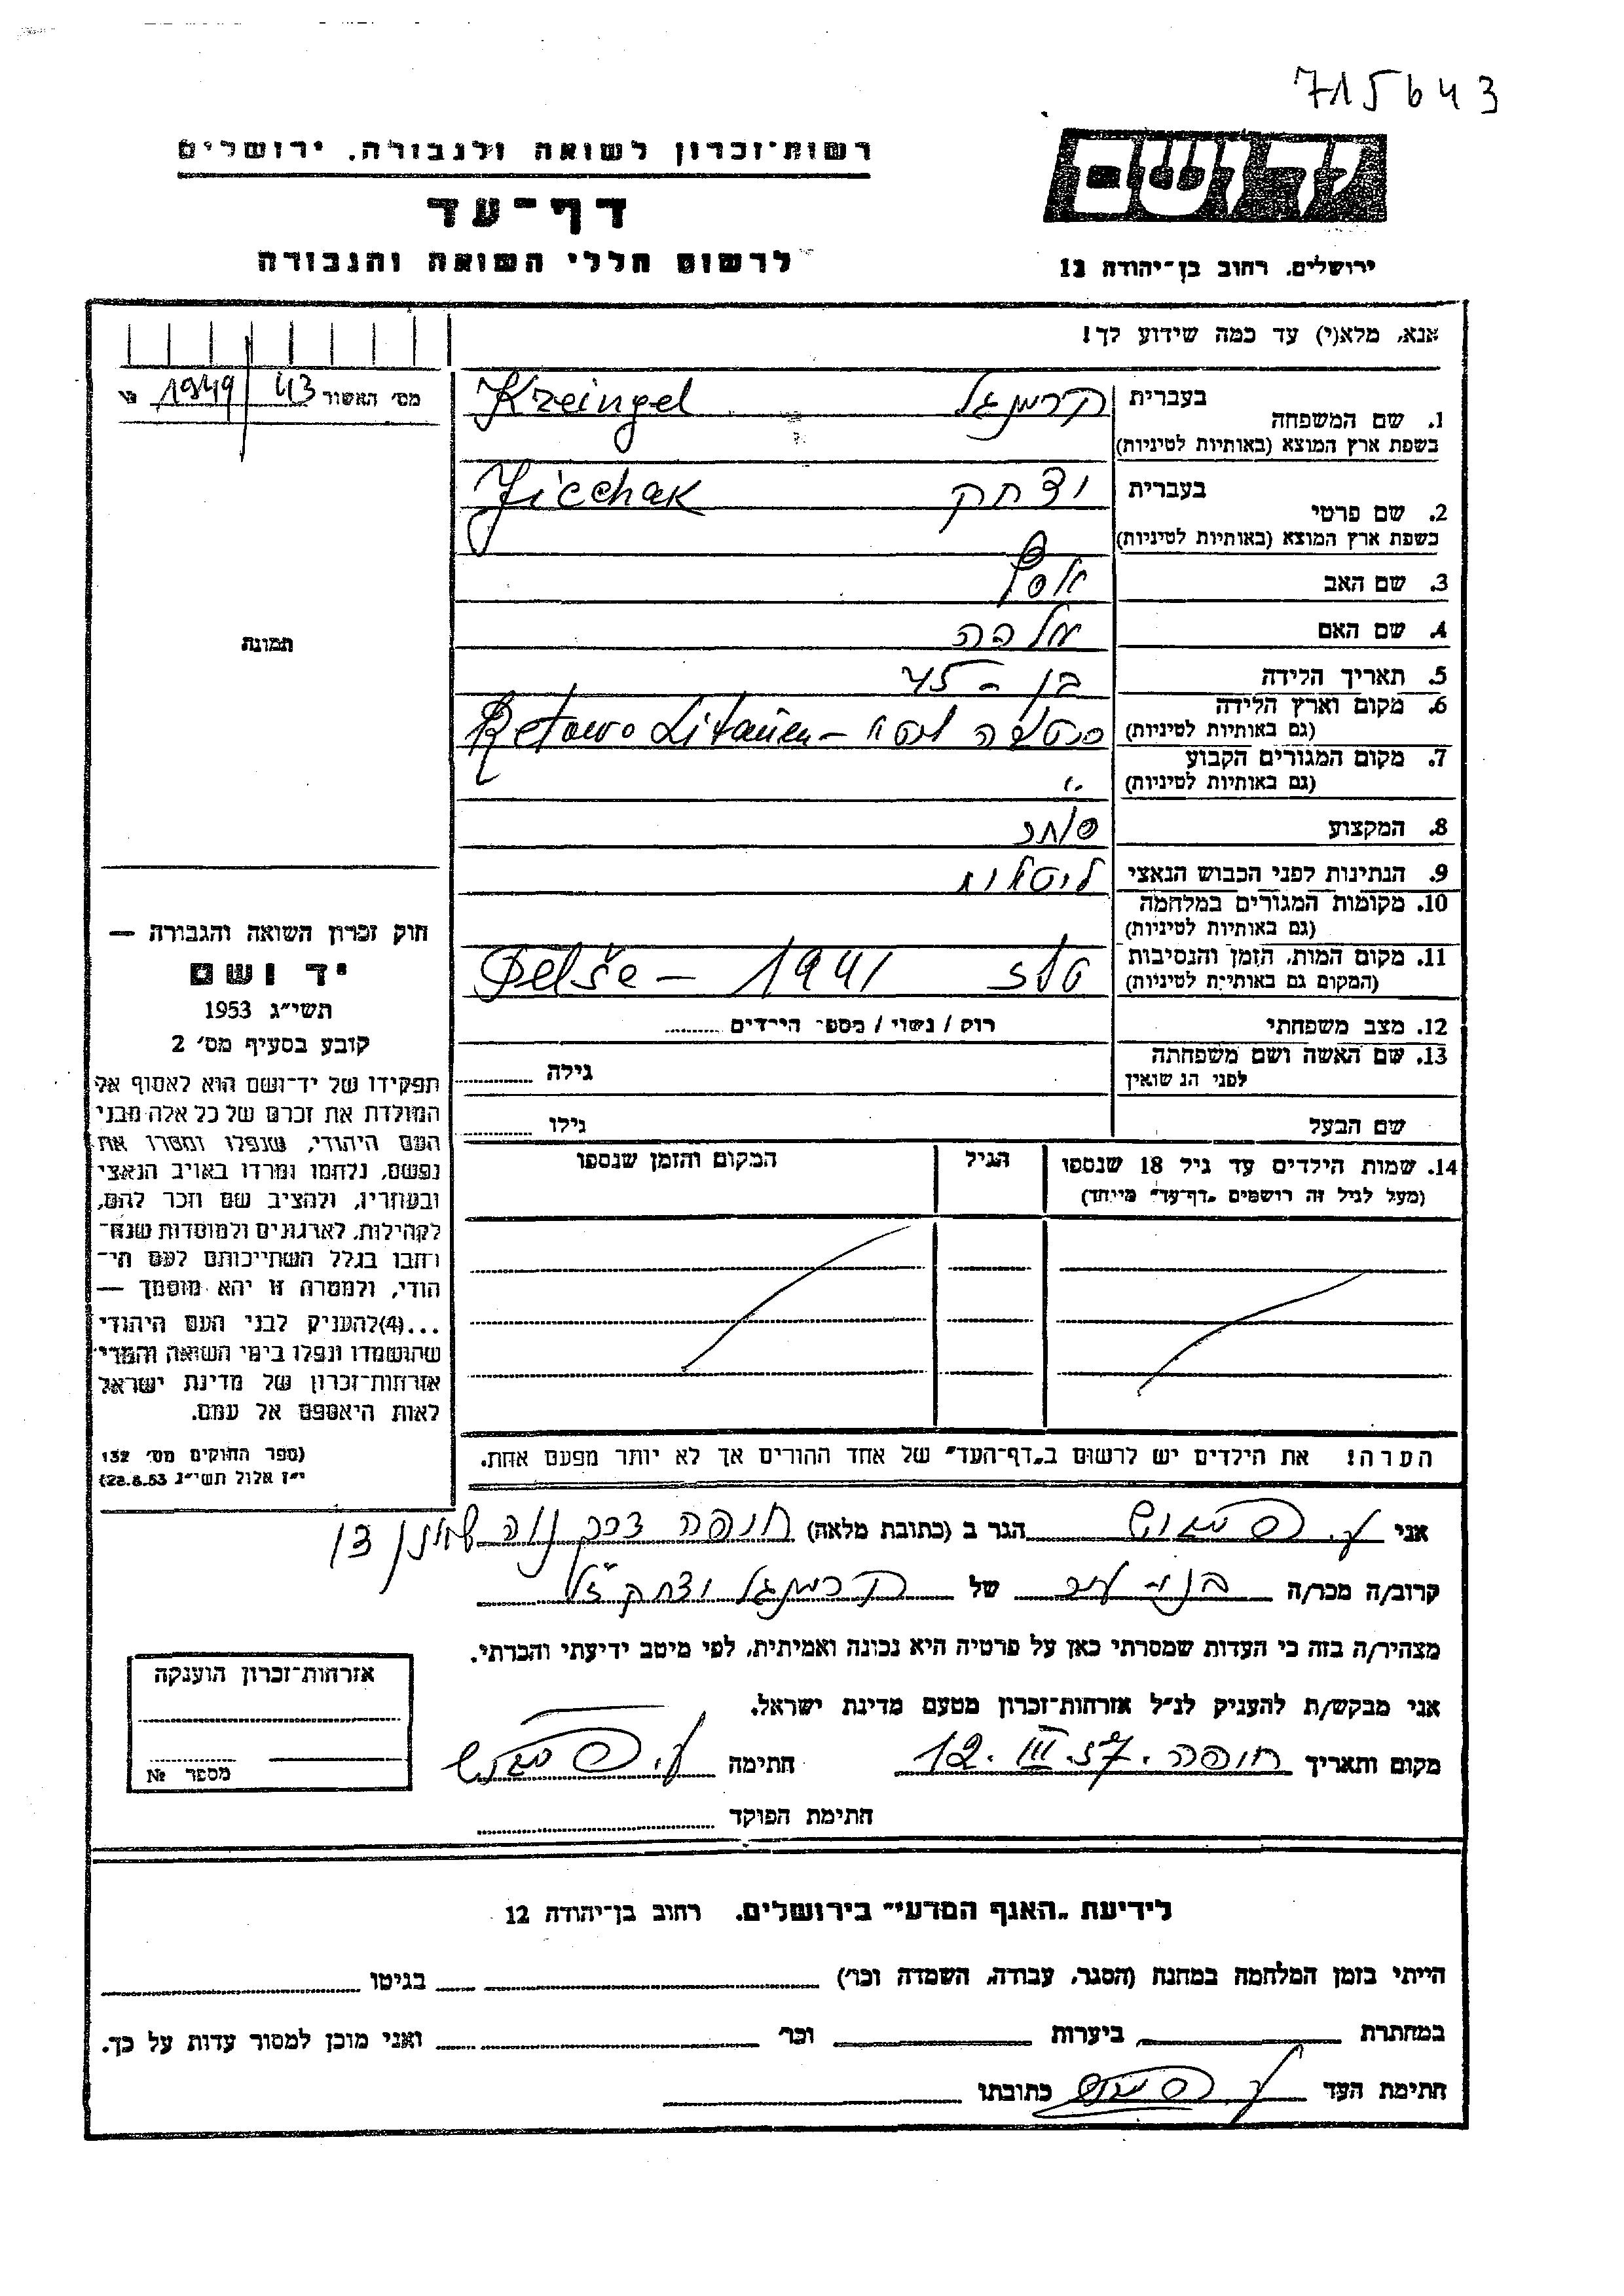 715643
רשות-זכרון לשואה ולגבורה. ירושלים
דף-עד
לרשום חללי השואה והגבורה
ירושלים. רחוב בן-יהודה 12
אנא, מלא(י) עד כמה שידוע לך!
מס׳ האשור 43 / 1949 №
1. שם המשפחה
בעברית
Kreingel
בשפת ארץ המוצא (באותיות לטיניות)
2. שם פרטי
בעברית יצחק
Jicchak
בשפת ארץ המוצא (באותיות לטיניות)
3. שם האב
4. שם האם
5. תאריך הלידה בן - 45
6. מקום וארץ הלידה
(גם באותיות לטיניות) Retowo Litauen -
7. מקום המגורים הקבוע
(גם באותיות לטיניות) "
8. המקצוע סוחר
9. הנתינות לפני הכבוש הנאצי ליטאית
10. מקומות המגורים במלחמה
(גם באותיות לטיניות)
11. מקום המות, הזמן והנסיבות
(המקום גם באותיות לטיניות) 1941 -
12. מצב משפחתי רווק / נשוי / מספר הילדים
13. שם האשה ושם משפחתה
לפני הנשואין גילה
שם הבעל גילו
14. שמות הילדים עד גיל 18 שנספו הגיל המקום והזמן שנספו
(מעל לגיל זה רושמים „דף-עד" מיוחד)
תמונה
חוק זכרון השואה והגבורה —
יד ושם
תשי"ג 1953
קובע בסעיף מס׳ 2
תפקידו של יד-ושם הוא לאסוף אל
המולדת את זכרם של כל אלה מבני
העם היהודי, שנפלו ומסרו את
נפשם, נלחמו ומרדו באויב הנאצי
ובעוזריו, ולהציב שם וזכר להם,
לקהילות, לארגונים ולמוסדות שנח־
רבו בגלל השתייכותם לעם הי־
הודי, ולמטרה זו יהא מוסמך —
...(4)להעניק לבני העם היהודי
שהושמדו ונפלו בימי השואה והמרי
אזרחות-זכרון של מדינת ישראל
לאות היאספם אל עמם.
(ספר החוקים מס׳ 132
י"ז אלול תשי"ג 28.8.53)
הערה! את הילדים יש לרשום ב„דף-העד" של אחד ההורים אך לא יותר מפעם אחת.
אני הגר ב (כתובת מלאה) חיפה דרך נוה שאנן 13
קרוב/ה מכר/ה של יצחק ז"ל
מצהיר/ה בזה כי העדות שמסרתי כאן על פרטיה היא נכונה ואמיתית, לפי מיטב ידיעתי והכרתי.
אני מבקש/ת להעניק לנ"ל אזרחות-זכרון מטעם מדינת ישראל.
מקום ותאריך חיפה. 12.III.57 חתימה
חתימת הפוקד
אזרחות-זכרון הוענקה
מספר №
לידיעת „האגף המדעי" בירושלים. רחוב בן-יהודה 12
הייתי בזמן המלחמה במחנה (הסגר, עבודה, השמדה וכו׳) בגיטו
במחתרת ביערות וכו׳ ואני מוכן למסור עדות על כך.
חתימת העד כתובתו